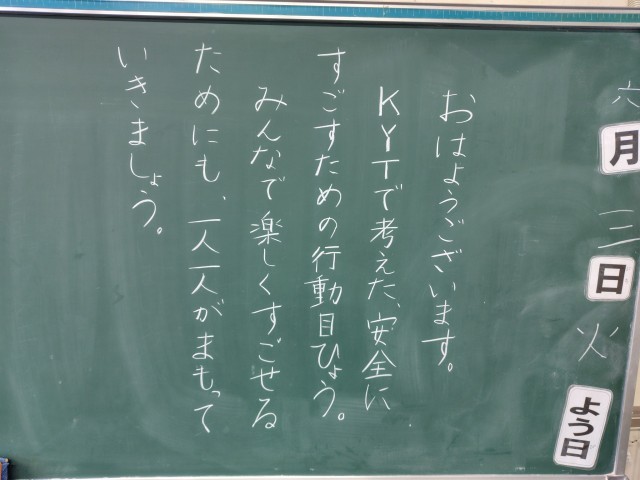 六月三日火よう日
おはようございます。
KYTで考えた、安全に
すごすための行動目ひょう。
みんなで楽しくすごせる
ためにも、一人一人がまもって
いきましょう。